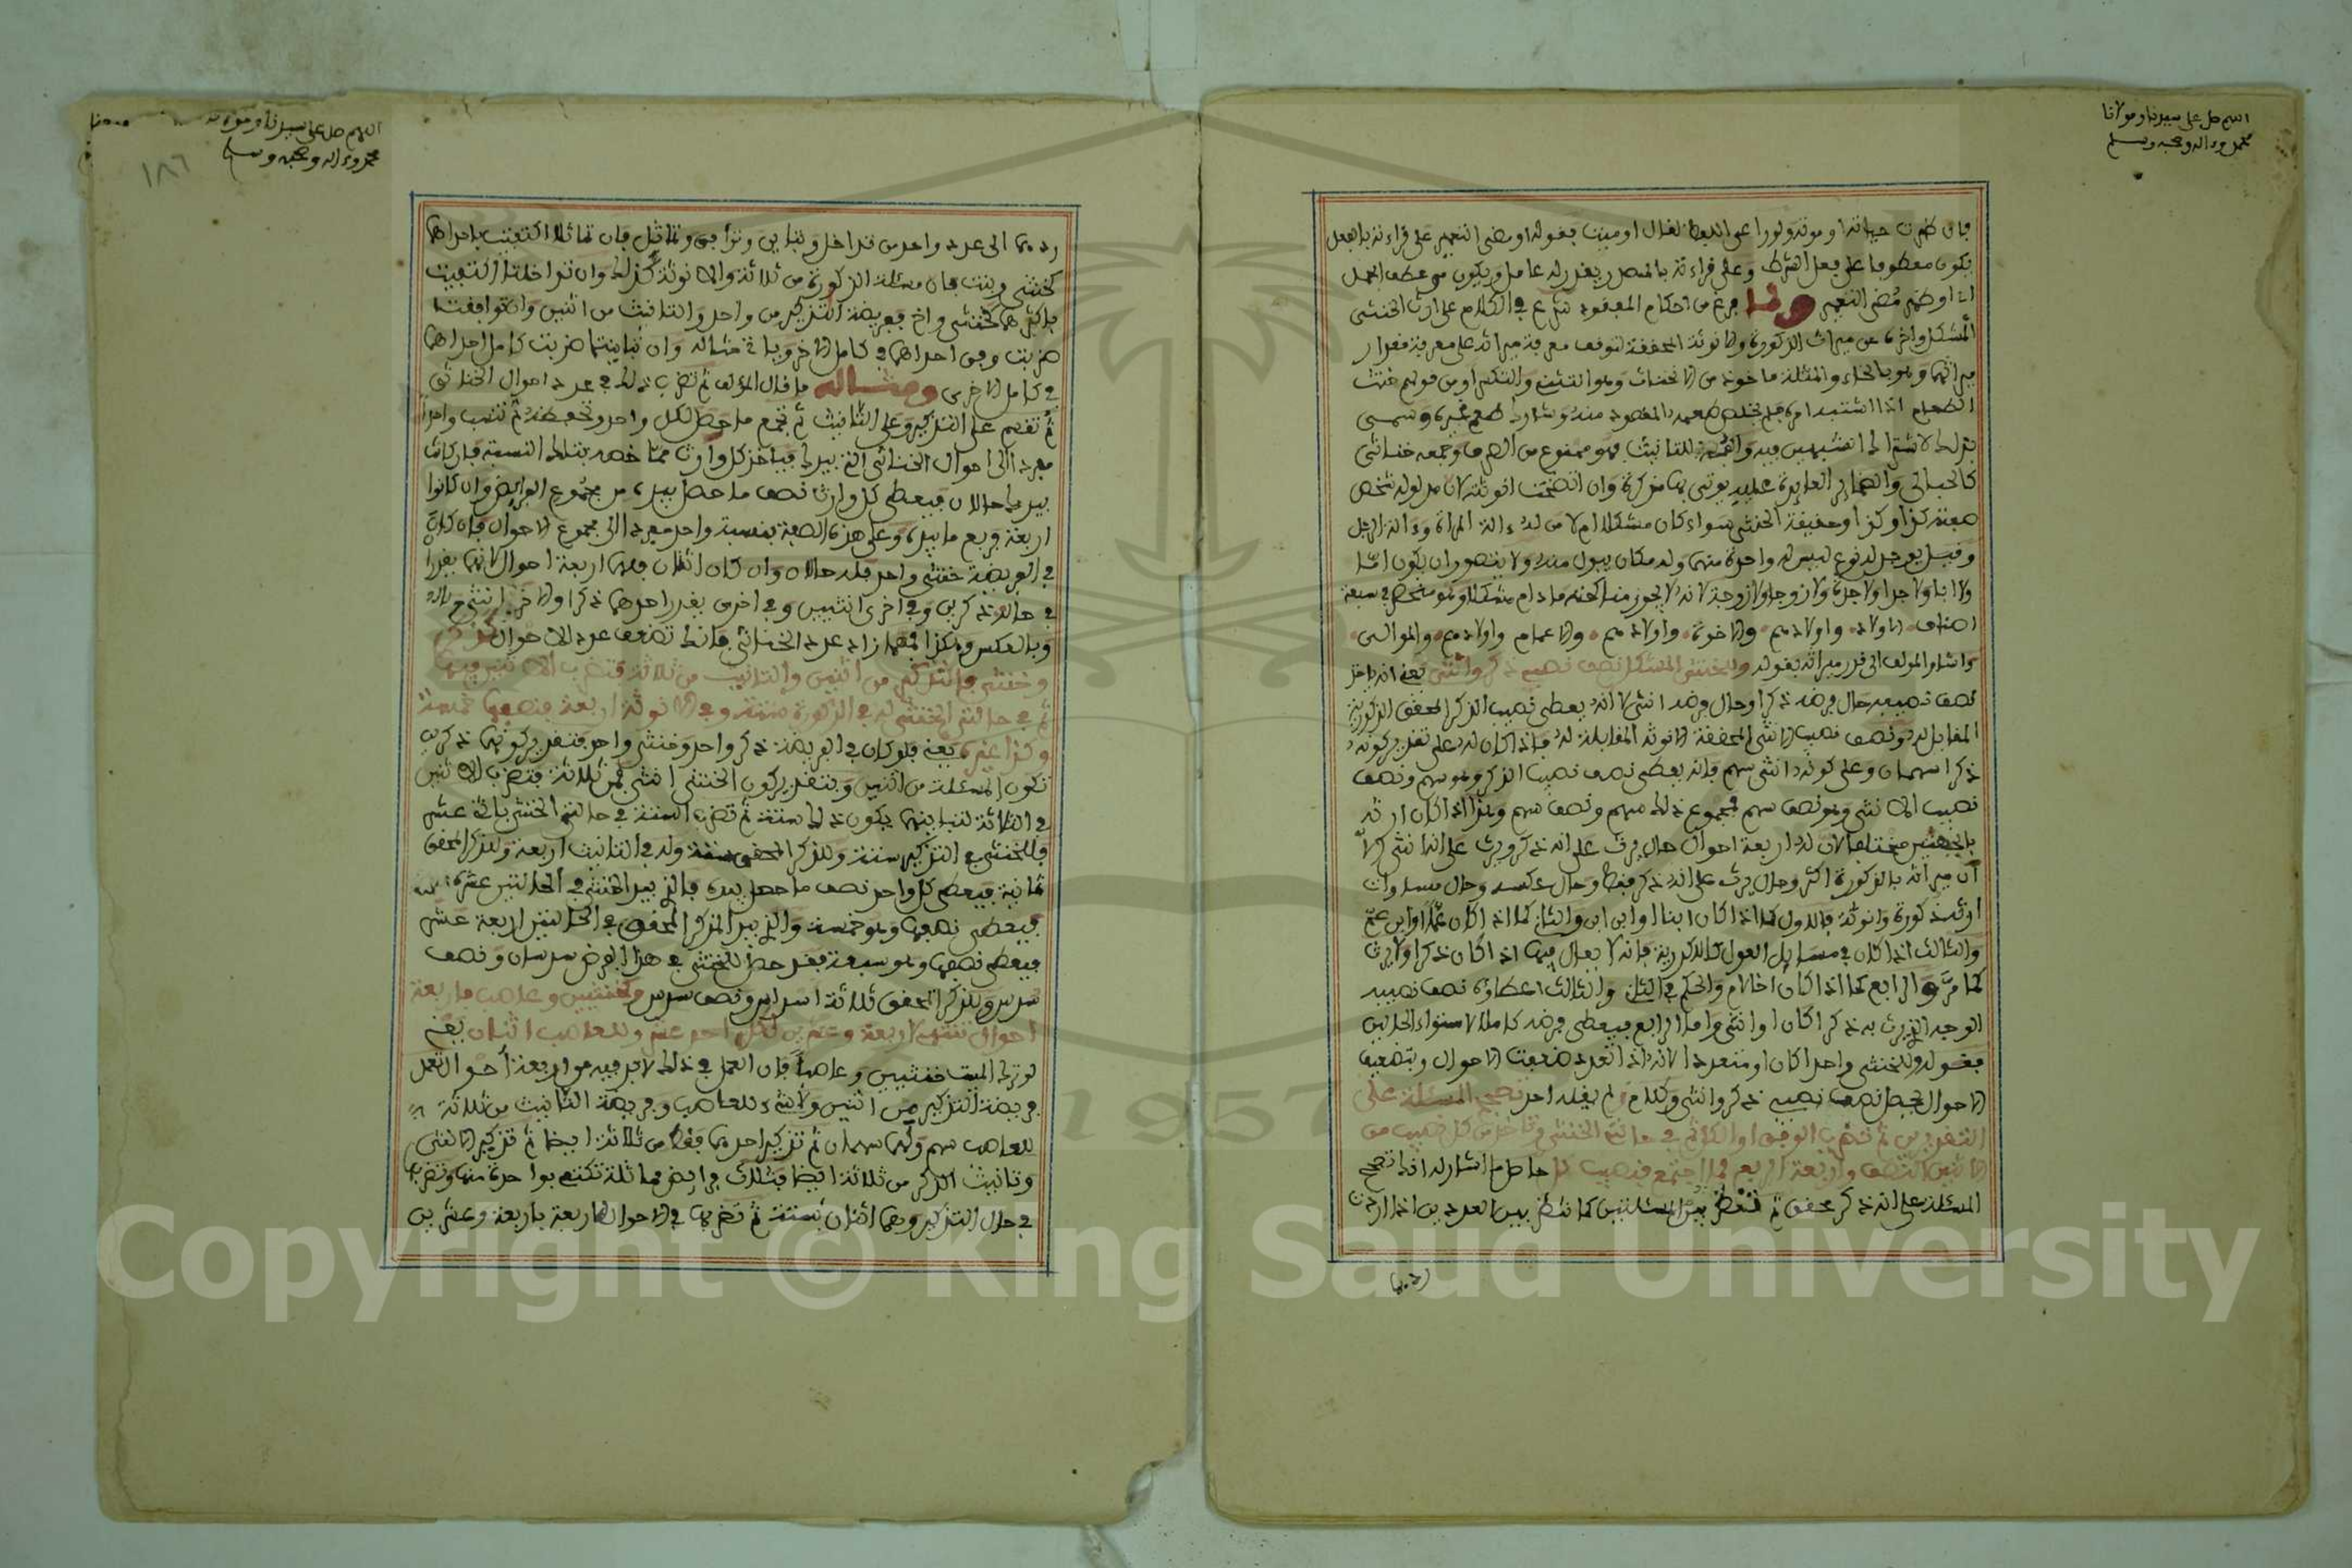 اللهم صل على سيدنا ومولانا
محمد وءاله وصحبه وسلم
فان ظهرت حياته او موته ولو راعى اللفظ لقال او ميت بقوله او مضي التعمير على قراءته بالفعل
يكون معطوفا على فعل الشرط وعلى قراءته بالمصدر يقدر له عامل ويكون من عطف الجمل
اي او ظهر مضي التعمير ولما فرغ من احكام المفقود شرع في الكلام على ارث الخنثى
المشكل واخره عن ميراث الذكورة والانوثة المحققة لتوقف معرفة ميراثه على معرفة مقدار
ميراثهما وهو بالخاء والمثلثة ماخوذ من الانخناث وهو التثني والتكسر او من قولهم خنث
الطعام اذا اشتبه امره فلم يخلص طعمه المقصود منه وشارك طعم غيره وسمي
بذلك لاشتراك الشبهين فيه والفه للتانيث فهو ممنوع من الصرف وجمعه خناثى
كالحبالى والضماير العايدة عليه يوتى بها مذكرة وان اتضحت انوثته لان مدلوله شخص
صفته كذا وكذا وحقيقة الخنثى سواء كان مشكلا ام لا من له ءالة المراة وءالة الرجل
وقيل يوجد له نوع ليس له واحدة منهما وله مكان يبول منه ولا يتصور ان يكون اما
ولا ابا ولا جدا ولا جدة ولا زوجا ولا زوجة لانه لا يجوز مناكحته ما دام مشكلا وهو منحصر في سبعة
اصناف الاولاد واولادهم والاخوة واولادهم والاعمام واولادهم والموالي
واشار المولف الى قدر ميراثه بقوله وللخنثى المشكل نصف نصيبي ذكر وانثى يعني انه ياخذ
نصف نصيبه حال فرضه ذكرا وحال فرضه انثى لا انه يعطى نصيب الذكر المحقق الذكورية
المقابل له ونصف نصيب الانثى المحققة الانوثة المقابلة له فاذا كان له على تقدير كونه
ذكرا سهمان وعلى كونه انثى سهم فانه يعطى نصف نصيب الذكر وهو سهم ونصف
نصيب الانثى وهو نصف سهم فمجموع ذلك سهم ونصف سهم وهذا اذا كان ارثه
بالجهتين مختلفا لان له اربعة احوال حال يرث على انه ذكر ويرث على انه انثى الا
ان ميراثه بالذكورة اكثر وحال يرث على انه ذكر فقط وحال عكسه وحال مساوات
ارثه ذكورة وانوثة فالاول كما اذا كان ابنا او ابن ابن والثاني كما اذا كان عما او ابن عم
والثالث اذا كان في مسايل العول كالاكدرية فانه لا يعال فيها اذ كان ذكرا ولا يرث
كما مر والرابع كما اذا كان اخا لام والحكم في الثاني والثالث اعطاؤه نصف نصيبه
الوجه الذي يرث به ذكرا كان او انثى واما الرابع فيعطى فرضه كاملا لاستواء الحالين
فقوله وللخنثى واحدا كان او متعددا الا انه اذا تعدد ضعفت الاحوال وبتضعيف
الاحوال يحصل نصف نصيبي ذكر وانثى وكلام لم يفده احد تصحح المسئلة على
التقديرين ثم تضرب الوفق او الكل ثم في حالتي الخنثى وتاخذ من كل نصيب من
الاثنين النصف واربعة الربع فما اجتمع فنصيب كل حاصل ما اشار له انك تصحح
المسئلة على انه ذكر محقق ثم تنظر بين المسئلتين كما تنظر بين العددين اذا اردت
ردهما
اللهم صل على سيدنا ومولانا
محمد وءاله وصحبه وسلم
١٨٦
ردهما الى عدد واحد من تداخل وتباين وتوافق وتماثل فان تماثلا اكتفيت باحداهما
كخنثى وبنت فان مسئلة الذكورة من ثلاثة والانوثة كذلك وان تداخلتا اكتفيت
باكثرهما كخنثى واخ ففريضة التذكير من واحد والتانيث من اثنين وان توافقتا
ضربت وفق احداهما في كامل الاخر وياتي مثاله وان تباينتا ضربت كامل احداهما
في كامل الاخرى ومثاله ما قال المؤلف ثم تضرب ذلك في عدد احوال الخناثى
ثم تقسم على التذكير وعلى التانيث ثم تجمع ما حصل لكل واحد وتحفظه ثم تنسب واحدا
مفردا الى احوال الخناثى الذي بيدك فياخذ كل وارث مما خصه بتلك النسبة فان كانت
بيدك حالان فيعطى كل وارث نصف ما حصل بيده من مجموع الفرايض وان كانوا
اربعة فربع ما بيده وعلى هذه الصفة بنسبة واحد مفرد الى مجموع الاحوال فان كان
في الفريضة خنثى واحد فله حالان وان كان اثنان فلهما اربعة احوال لانهما يقدرا
في حالة ذكرين وفي اخرى انثيين وفي اخرى يقدر احدهما ذكرا والاخر انثى
وبالعكس وهكذا فمهما زاد عدد الخناثى فانك تضعف عدد الاحوال كذكر
وخنثى فالتذكير من اثنين والتانيث من ثلاثة فتضرب الاثنين فيها
ثم في حالتي الخنثى له في الذكورة ستة وفي الانوثة اربعة فنصفها خمسة
وكذا غيره يعني فلو كان في الفريضة ذكر واحد وخنثى واحد فتقدير كونهما ذكرين
تكون المسئلة من اثنين وبتقدير كون الخنثى انثى فمن ثلاثة فتضرب الاثنين
في الثلاثة لتباينهما يكون ذلك ستة ثم تضرب الستة في حالتي الخنثى باثني عشر
فللخنثى في التذكير ستة وللذكر المحقق ستة وله في التانيث اربعة وللذكر المحقق
ثمانية فيعطى كل واحد نصف ما حصل بيده فالذي بيد الخنثى في الحالتين عشرة
فيعطى نصفها وهو خمسة والذي بيد الذكر المحقق في الحالتين اربعة عشر
فيعطى نصفها وهو سبعة فقد حصل للخنثى في هذا الفرض سدسان ونصف
سدس وللذكر المحقق ثلاثة اسداس ونصف سدس وكخنثيين وعاصب فاربعة
احوال تنتهي لاربعة وعشرين لكل احد عشر وللعاصب اثنان يعني
لو ترك الميت خنثيين وعاصبا فان العمل في ذلك لابد فيه من اربعة احوال تعمل
فريضة التذكير من اثنين ولا شيء للعاصب وفريضة التانيث من ثلاثة
للعاصب سهم ولهما سهمان ثم تذكير احدهما فقط من ثلاثة ايضا ثم تذكير الانثى
وتانيث الذكر من ثلاثة ايضا فثلاث فرايض مماثلة تكتفي بواحدة منها وتضربها
في حال التذكير وهما اثنان بستة ثم تضربها في الاحوال الاربعة باربعة وعشرين
Copyright © King Saud University
1957